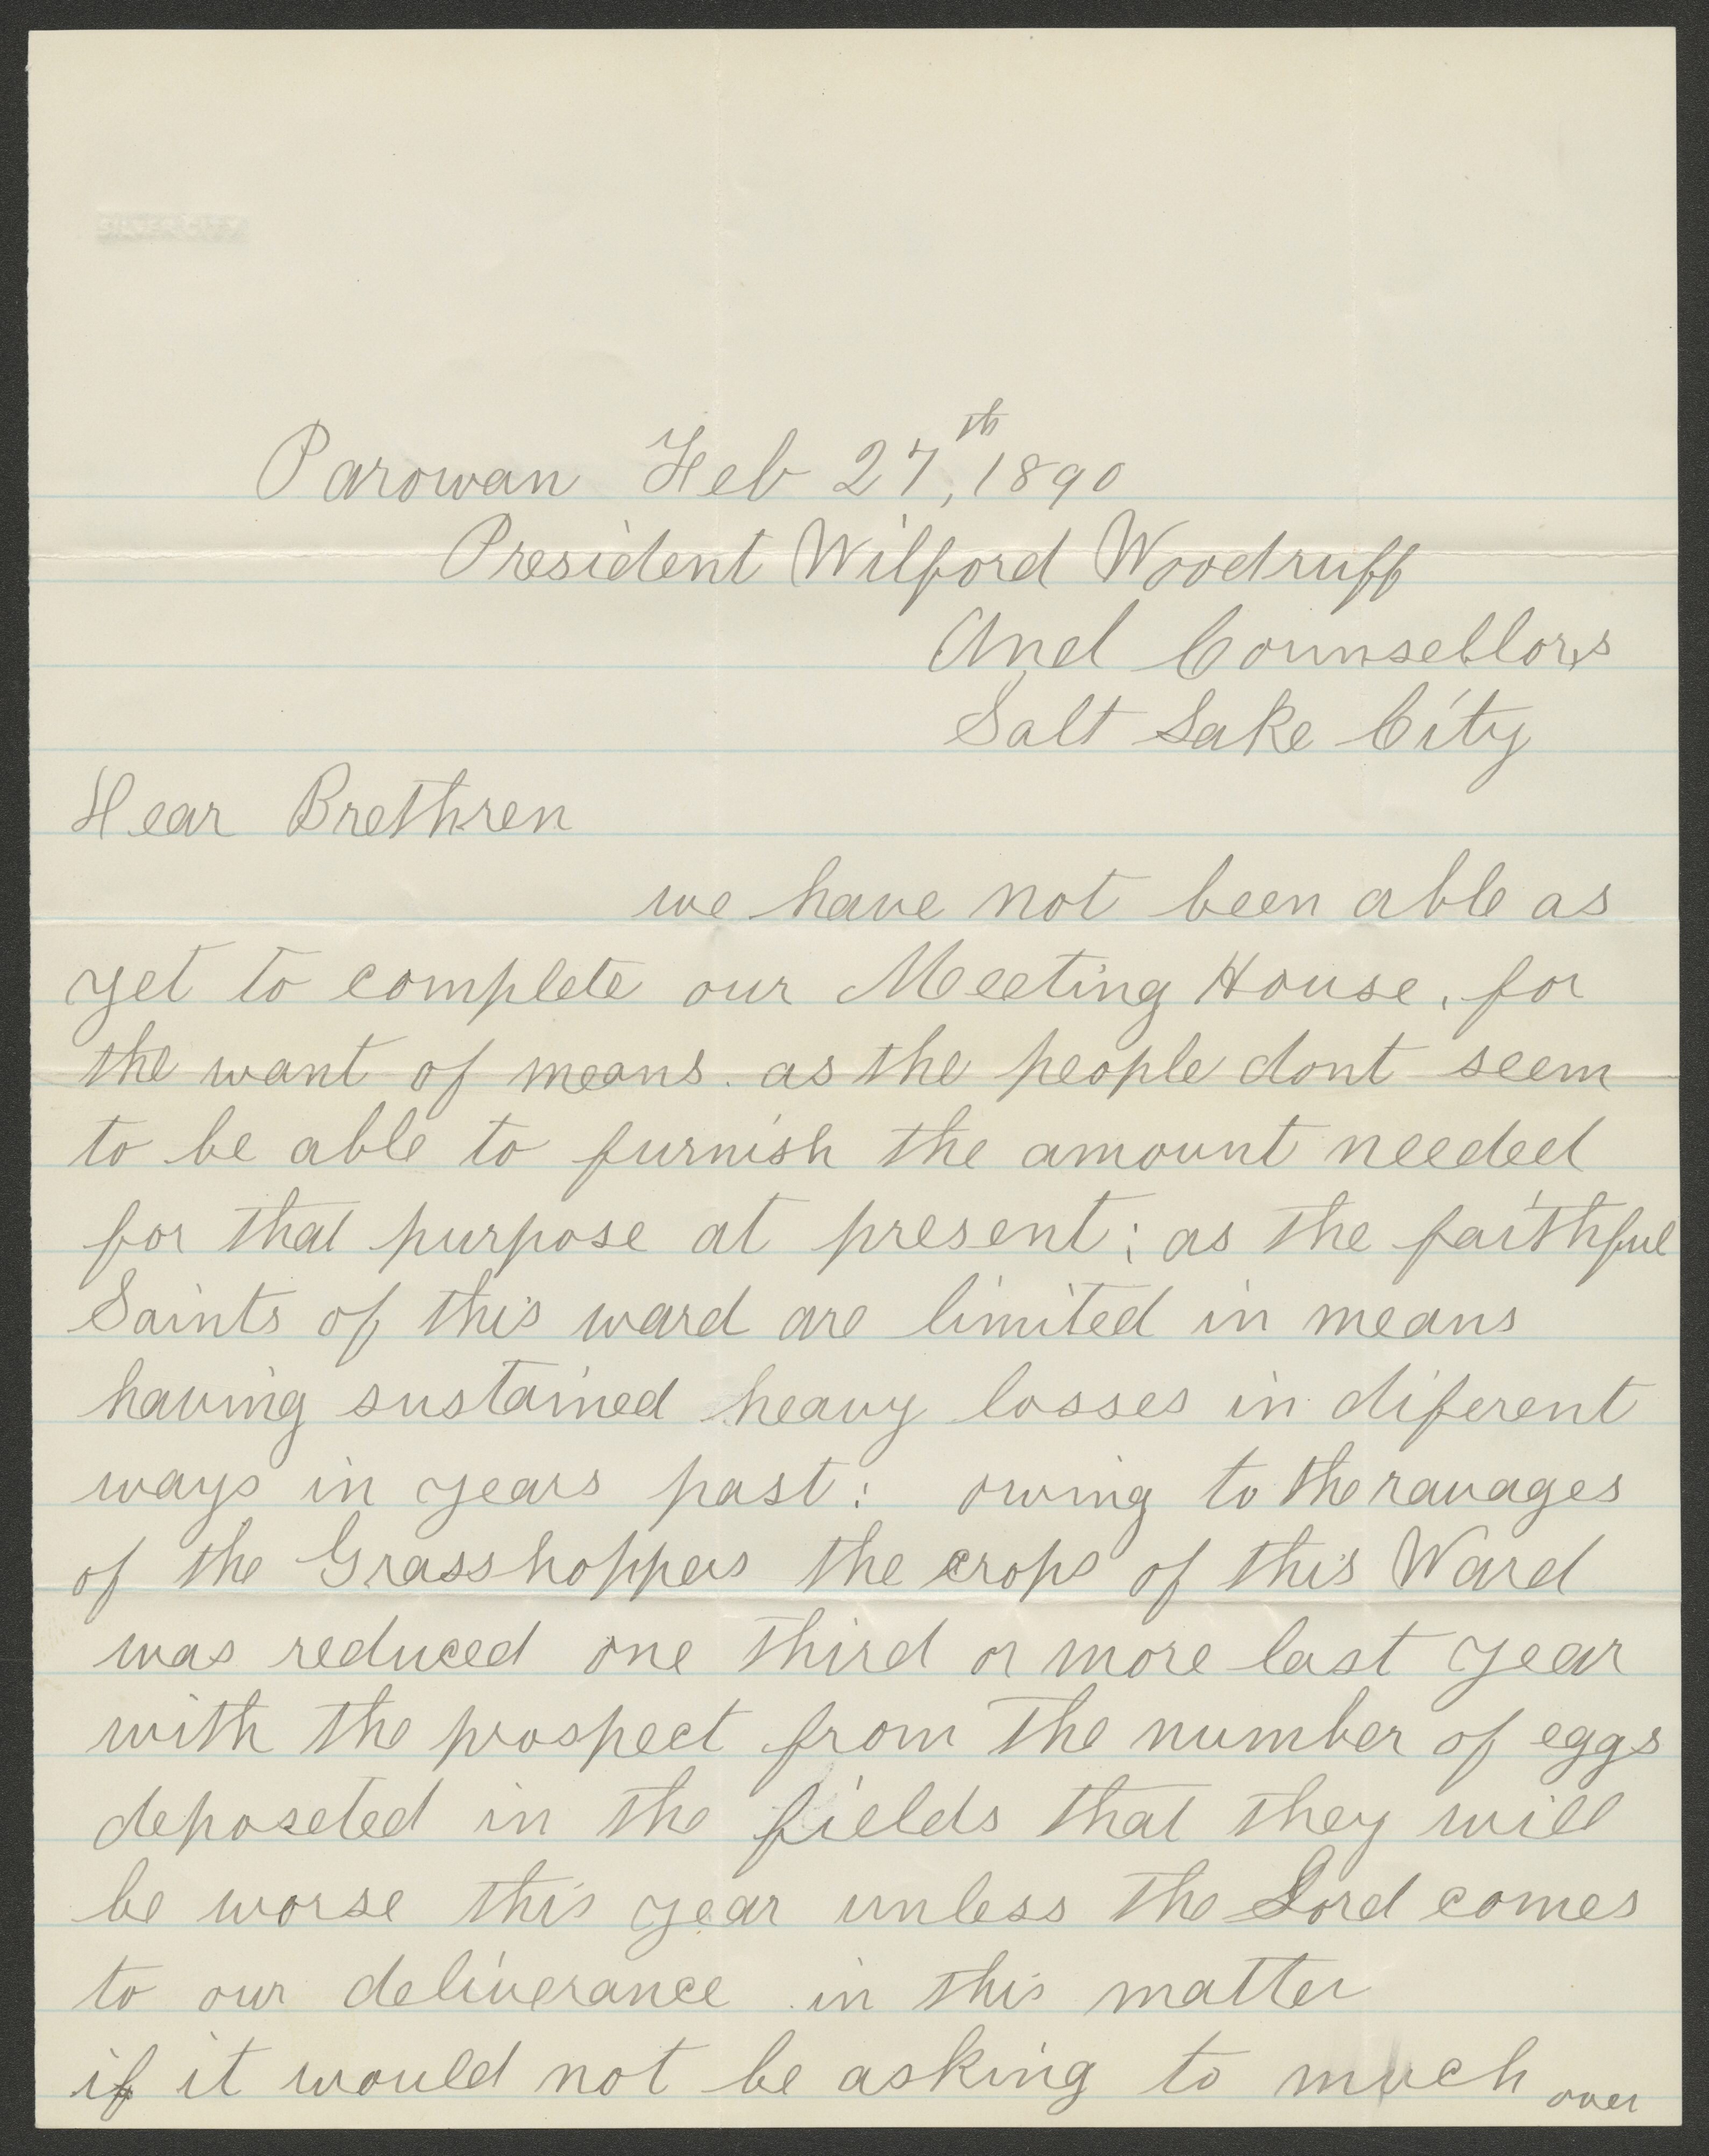 SILVER CITY
Parowan Feb 27th, 1890
President Wilford Woodruff
And Counsellors
Salt Lake City
Dear Brethren
we have not been able as
yet to complete our Meeting House, for
the want of means. as the people dont seem
to be able to furnish the amount needed
for that purpose at present; as the faithful
Saints of this ward are limited in means
having sustained heavy losses in diferent
ways in years past: owing to the ravages
of the Grasshoppers the crops of this Ward
was reduced one third or more last year
with the prospect from the number of eggs
deposeted in the fields that they will
be worse this year unless the Lord comes
to our deliverance in this matter
if it would not be asking to much over